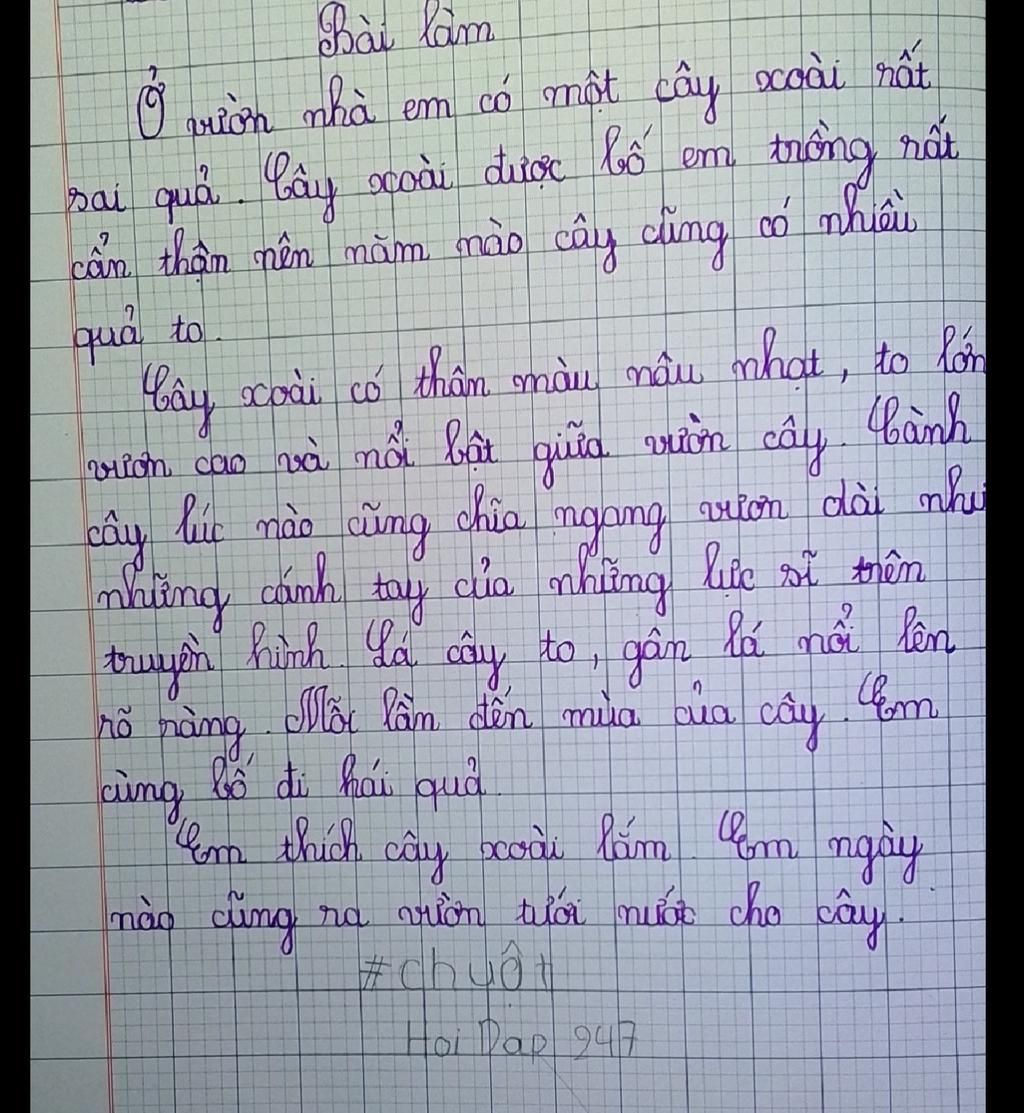 Bài làm
Ở vườn nhà em có một cây xoài rất
sai quả. Cây xoài được bố em trồng rất
cẩn thận nên năm nào cây cũng có nhiều
quả to.
Cây xoài có thân màu nâu nhạt, to lớn
vươn cao và nổi bật giữa vườn cây. Cành
cây lúc nào cũng chĩa ngang vươn dài như
những cánh tay của những lực sĩ trên
truyền hình. Lá cây to, gân lá nổi lên
rõ ràng. Mỗi lần đến mùa của cây. Em
cùng bố đi hái quả
Em thích cây xoài lắm. Em ngày
nào cũng ra vườn tưới nước cho cây.
#chuột
Hoi Dap 247